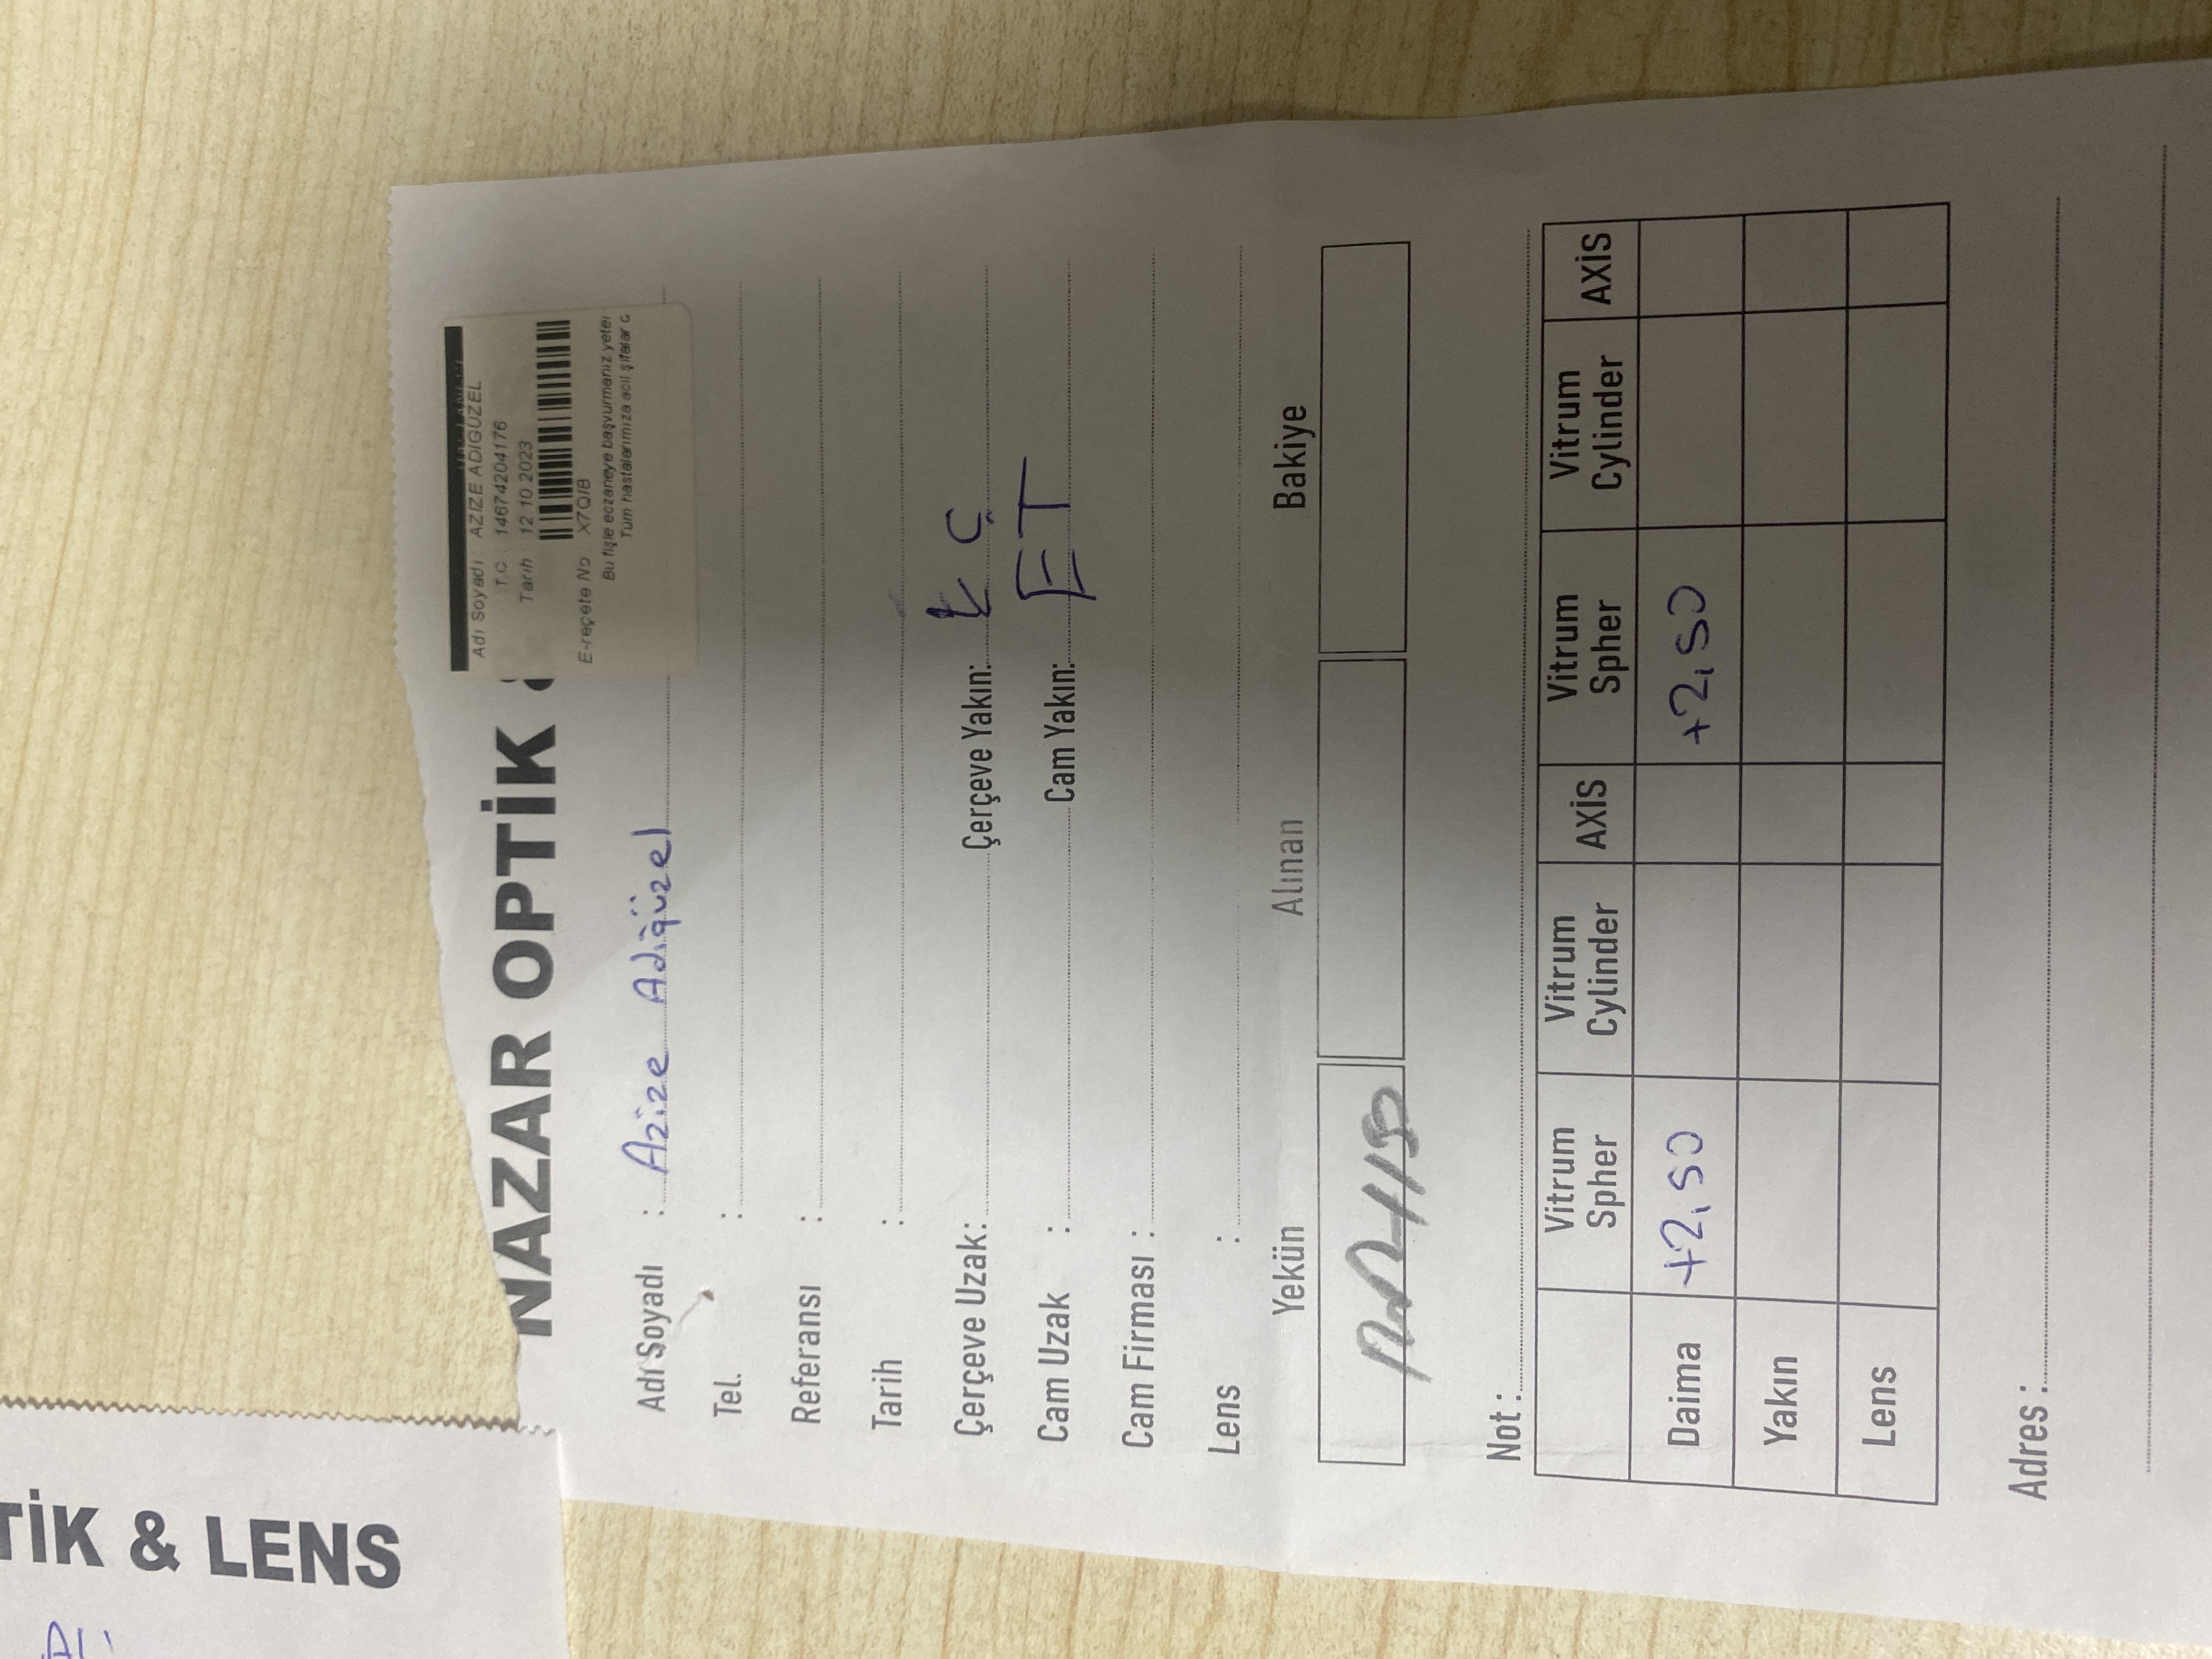 TİK & LENS
NAZAR OPTİK &
Adı Soyadı : AZİZE ADIGÜZEL
T.C. : 14674204176
Tarih : 12.10.2023
E-reçete No X7QI8
Bu fişle eczaneye başvurmanız yeter
Tüm hastalarımıza acil şifalar
Adı Soyadı : Azize Adıgüzel
Tel. :
Referansı :
Tarih :
Çerçeve Uzak: Çerçeve Yakın: Ç
Cam Uzak : Cam Yakın: ET
Cam Firması :
Lens :
Yekün Alınan Bakiye
Not :
Vitrum Spher Vitrum Cylinder AXİS Vitrum Spher Vitrum Cylinder AXİS
Daima +2,50 +2,50
Yakın
Lens
Adres :